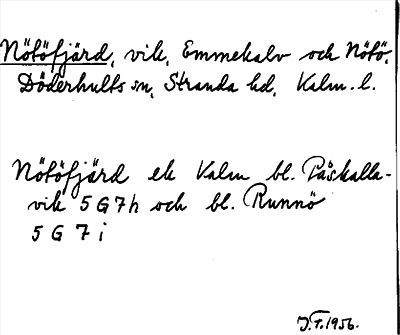 Nötöfjärd, vik, Emmekalv och Nötö,
Döderhults sn, Stranda hd, Kalm. l.
Nötöfjärd ek Kalm bl. Påskalla-
vik 5 G 7 h och bl. Runnö
5 G 7 i
J.T. 1956.